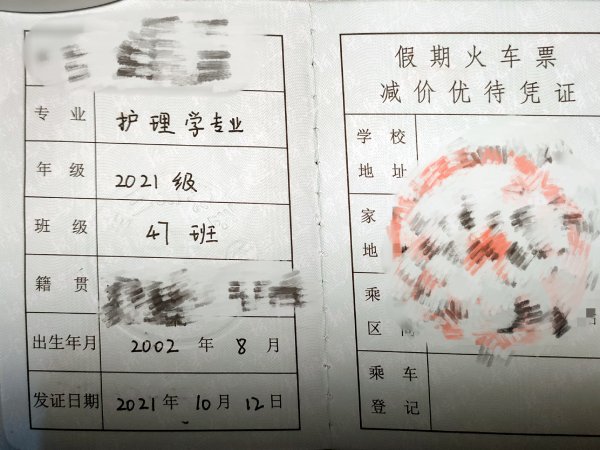 专业 护理学专业
年级 2021级
班级 47班
籍贯
出生年月 2002年8月
发证日期 2021年10月12日
假期火车票
减价优待凭证
学校
地址
家
地
乘
区
乘车
登记